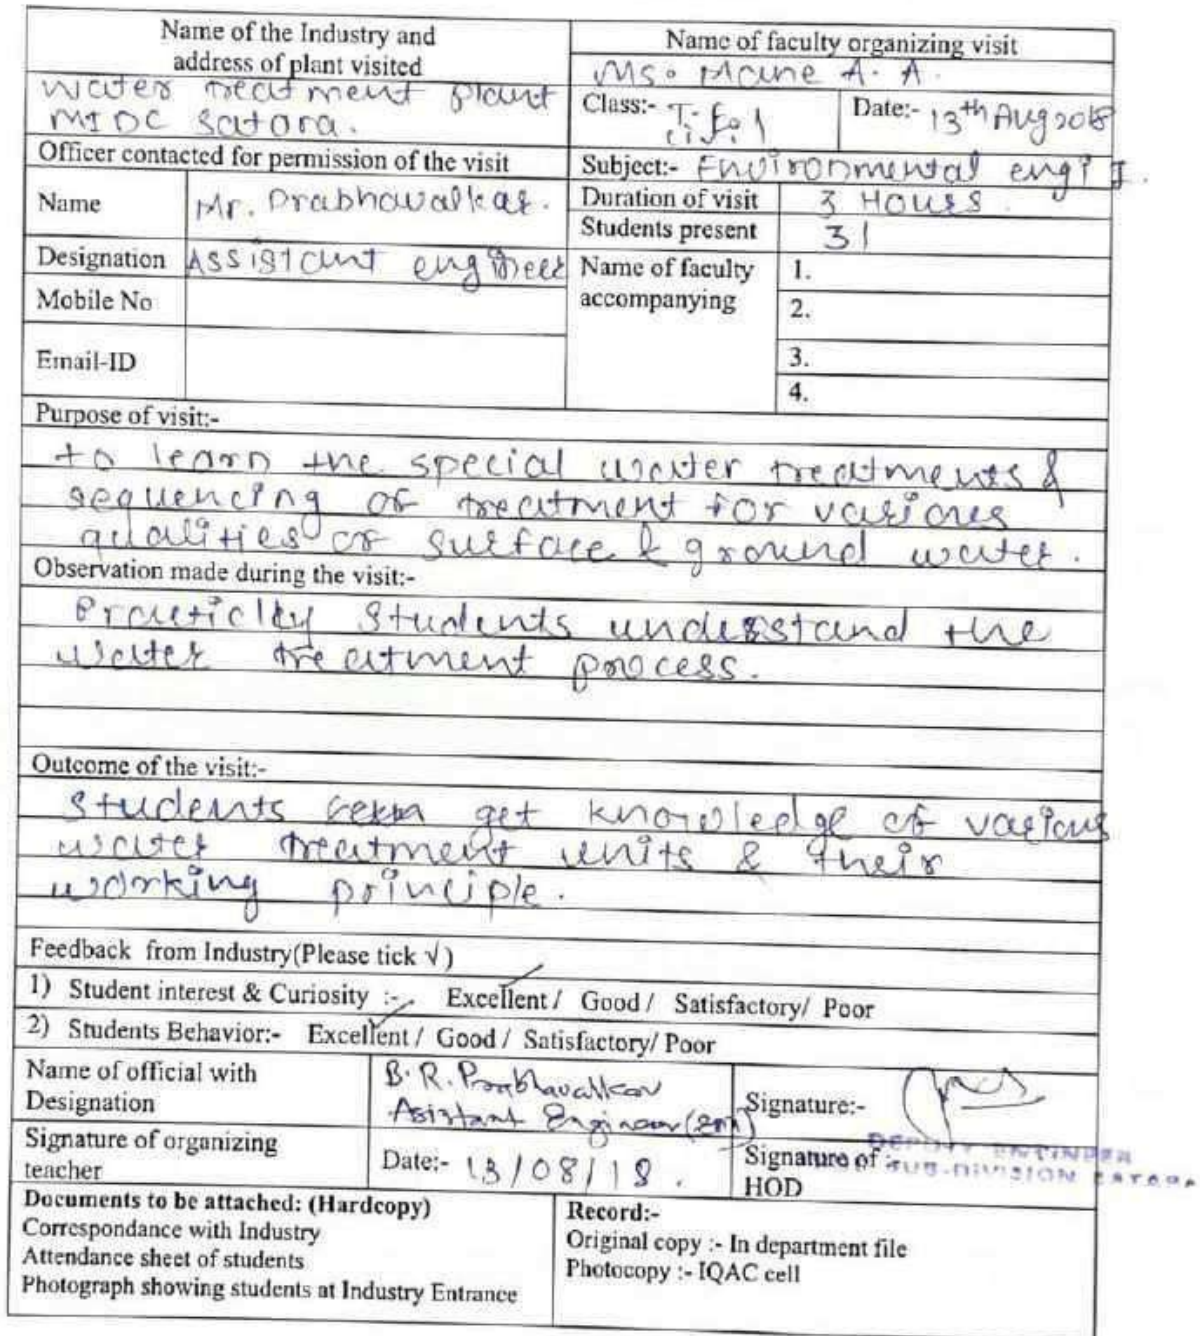 Name of the Industry and
address of plant visited
water treatment plant
MIDC Satara.
Name of faculty organizing visit
Ms. Mane A. A.
Class:- T.E. 1
civil
Date:- 13th Aug 2018
Officer contacted for permission of the visit
Subject:- Environmental engi I.
Name
Mr. Prabhavalkar.
Duration of visit
3 Hours.
Students present
31
Designation
Assistant engineer
Name of faculty
accompanying
1.
Mobile No
2.
Email-ID
3.
4.
Purpose of visit:-
to learn the special water treatments &
sequencing of treatment for various
qualities of surface & ground water.
Observation made during the visit:-
Practiclly students understand the
water treatment process.
Outcome of the visit:-
Students get knowledge of various
water treatment units & their
working principle.
Feedback from Industry(Please tick √)
1) Student interest & Curiosity :- Excellent / Good / Satisfactory/ Poor
2) Students Behavior:- Excellent / Good / Satisfactory/ Poor
Name of official with
Designation
B. R. Prabhavalkar
Asistant Engineer
Signature:-
Signature of organizing
teacher
Date:- 13/08/18.
Signature of
HOD
DEPUTY ENGINEER
SUB-DIVISION SATARA
Documents to be attached: (Hardcopy)
Correspondance with Industry
Attendance sheet of students
Photograph showing students at Industry Entrance
Record:-
Original copy :- In department file
Photocopy :- IQAC cell